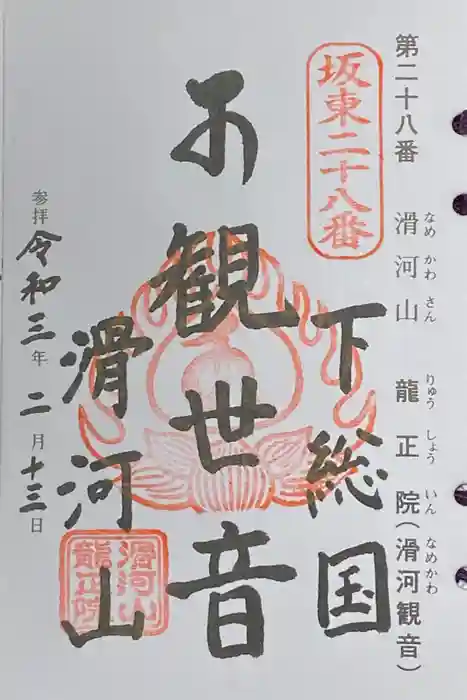 第二十八番 滑河山 龍正院(滑河観音)
なめ かわ さん りゅう しょう いん なめかわ
坂東二十八番
下総国
観世音
滑河山
滑河山
龍正院
参拝 令和三年二月十三日